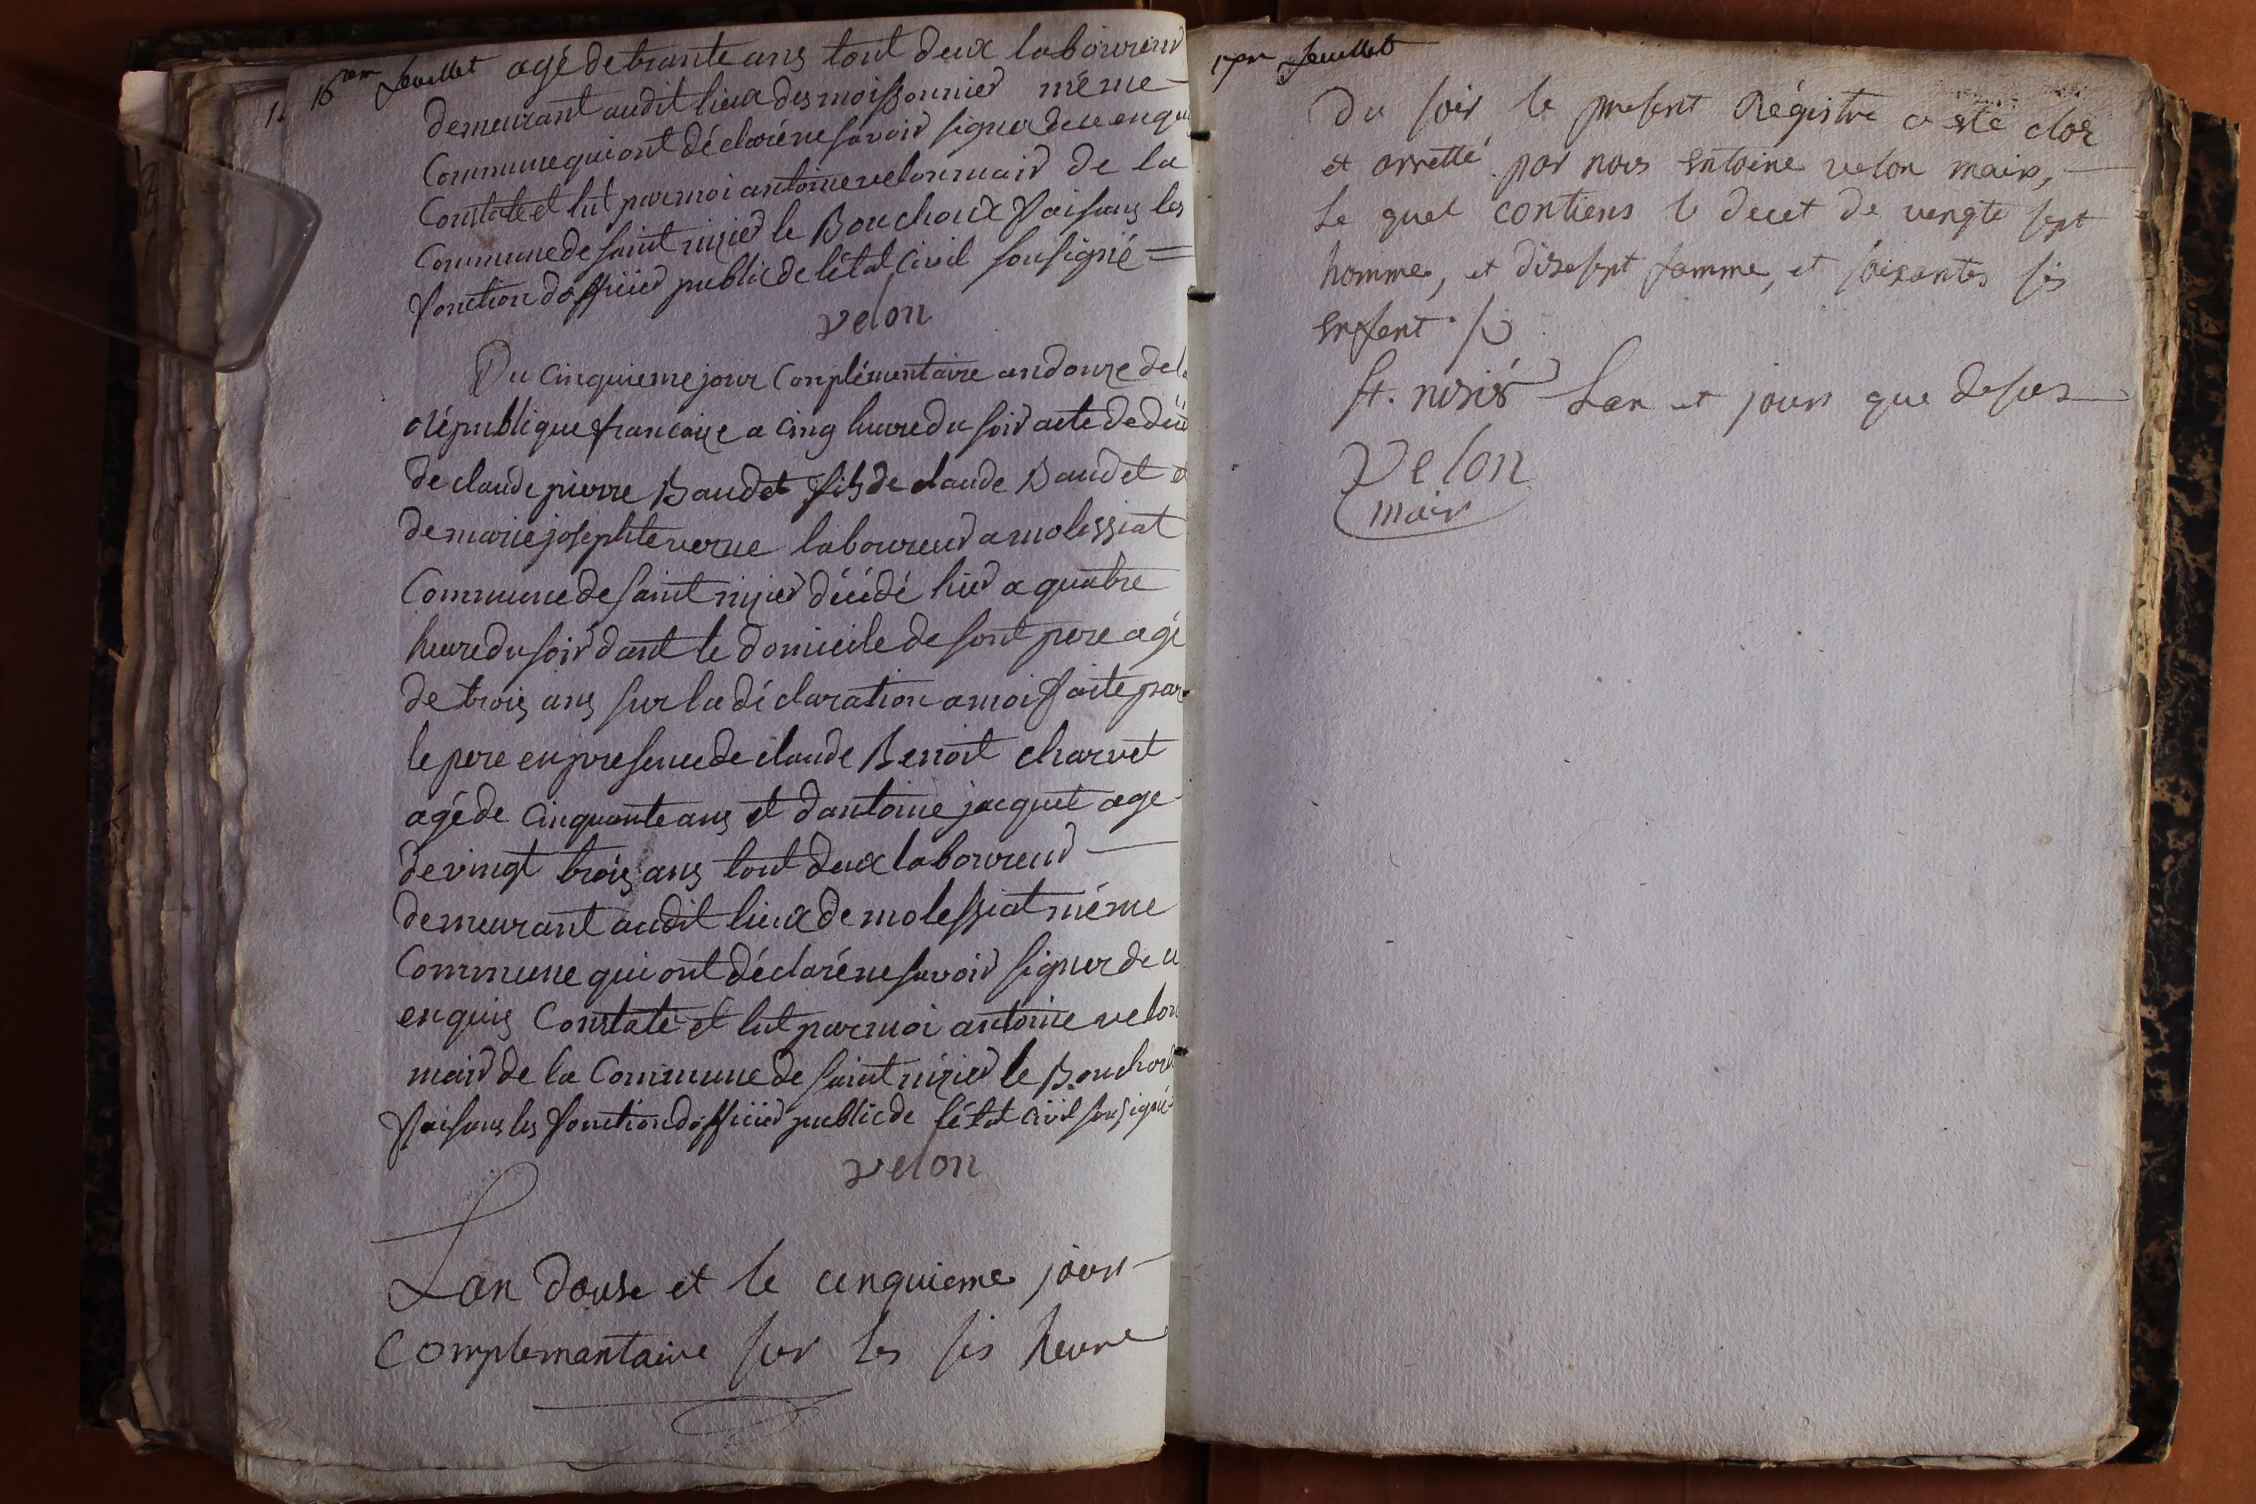 16em feuillet
agé de trante ans tout deux laboureur
demeurant audit lieux des moissonnier même
Commune qui ont déclaré ne savoir signer de ce enquis
Constaté et lut par moi antoine velon mair de la
Commune de saint nizier le Bouchoux faisans les
fonction dofficier public de létat civil sousigné =
velon
Du cinquieme jour Complémentaire an douze de la
république francaise a cinq heure du soir acte de décè
de claude pierre Baudet fils de claude Baudet et
de marie josephte verne laboureur a molessiat
Commune de saint nizier décédé hier a quatre
heure du soir dant le domicile de sont pere agé
de trois ans sur la déclaration a moi faite par
le pere en presence de claude Benoit charvet
agé de cinquante ans et dantoine jacquet age
de vingt trois ans tout deux laboureur
demeurant audit lieux de molessiat même
Commune qui ont déclaré ne savoir signer de ce
enquis Constaté et lut par moi antoine velon
mair de la Commune de saint nizier le Bouchoux
faisans les fonction dofficier public de létat civil sousigné
velon
Lan douse et le cinquieme jour
Complemantaire sur les sis heure
17em feuillet
Du soir le present Régistre a esté clos
et arretté par nous entoine velon mair,
Le quel contiens le decet de vengte sept
homme, et disesept famme, et soixantes sis
enfent
st. nisiér Lan et jours que desus
velon
mair